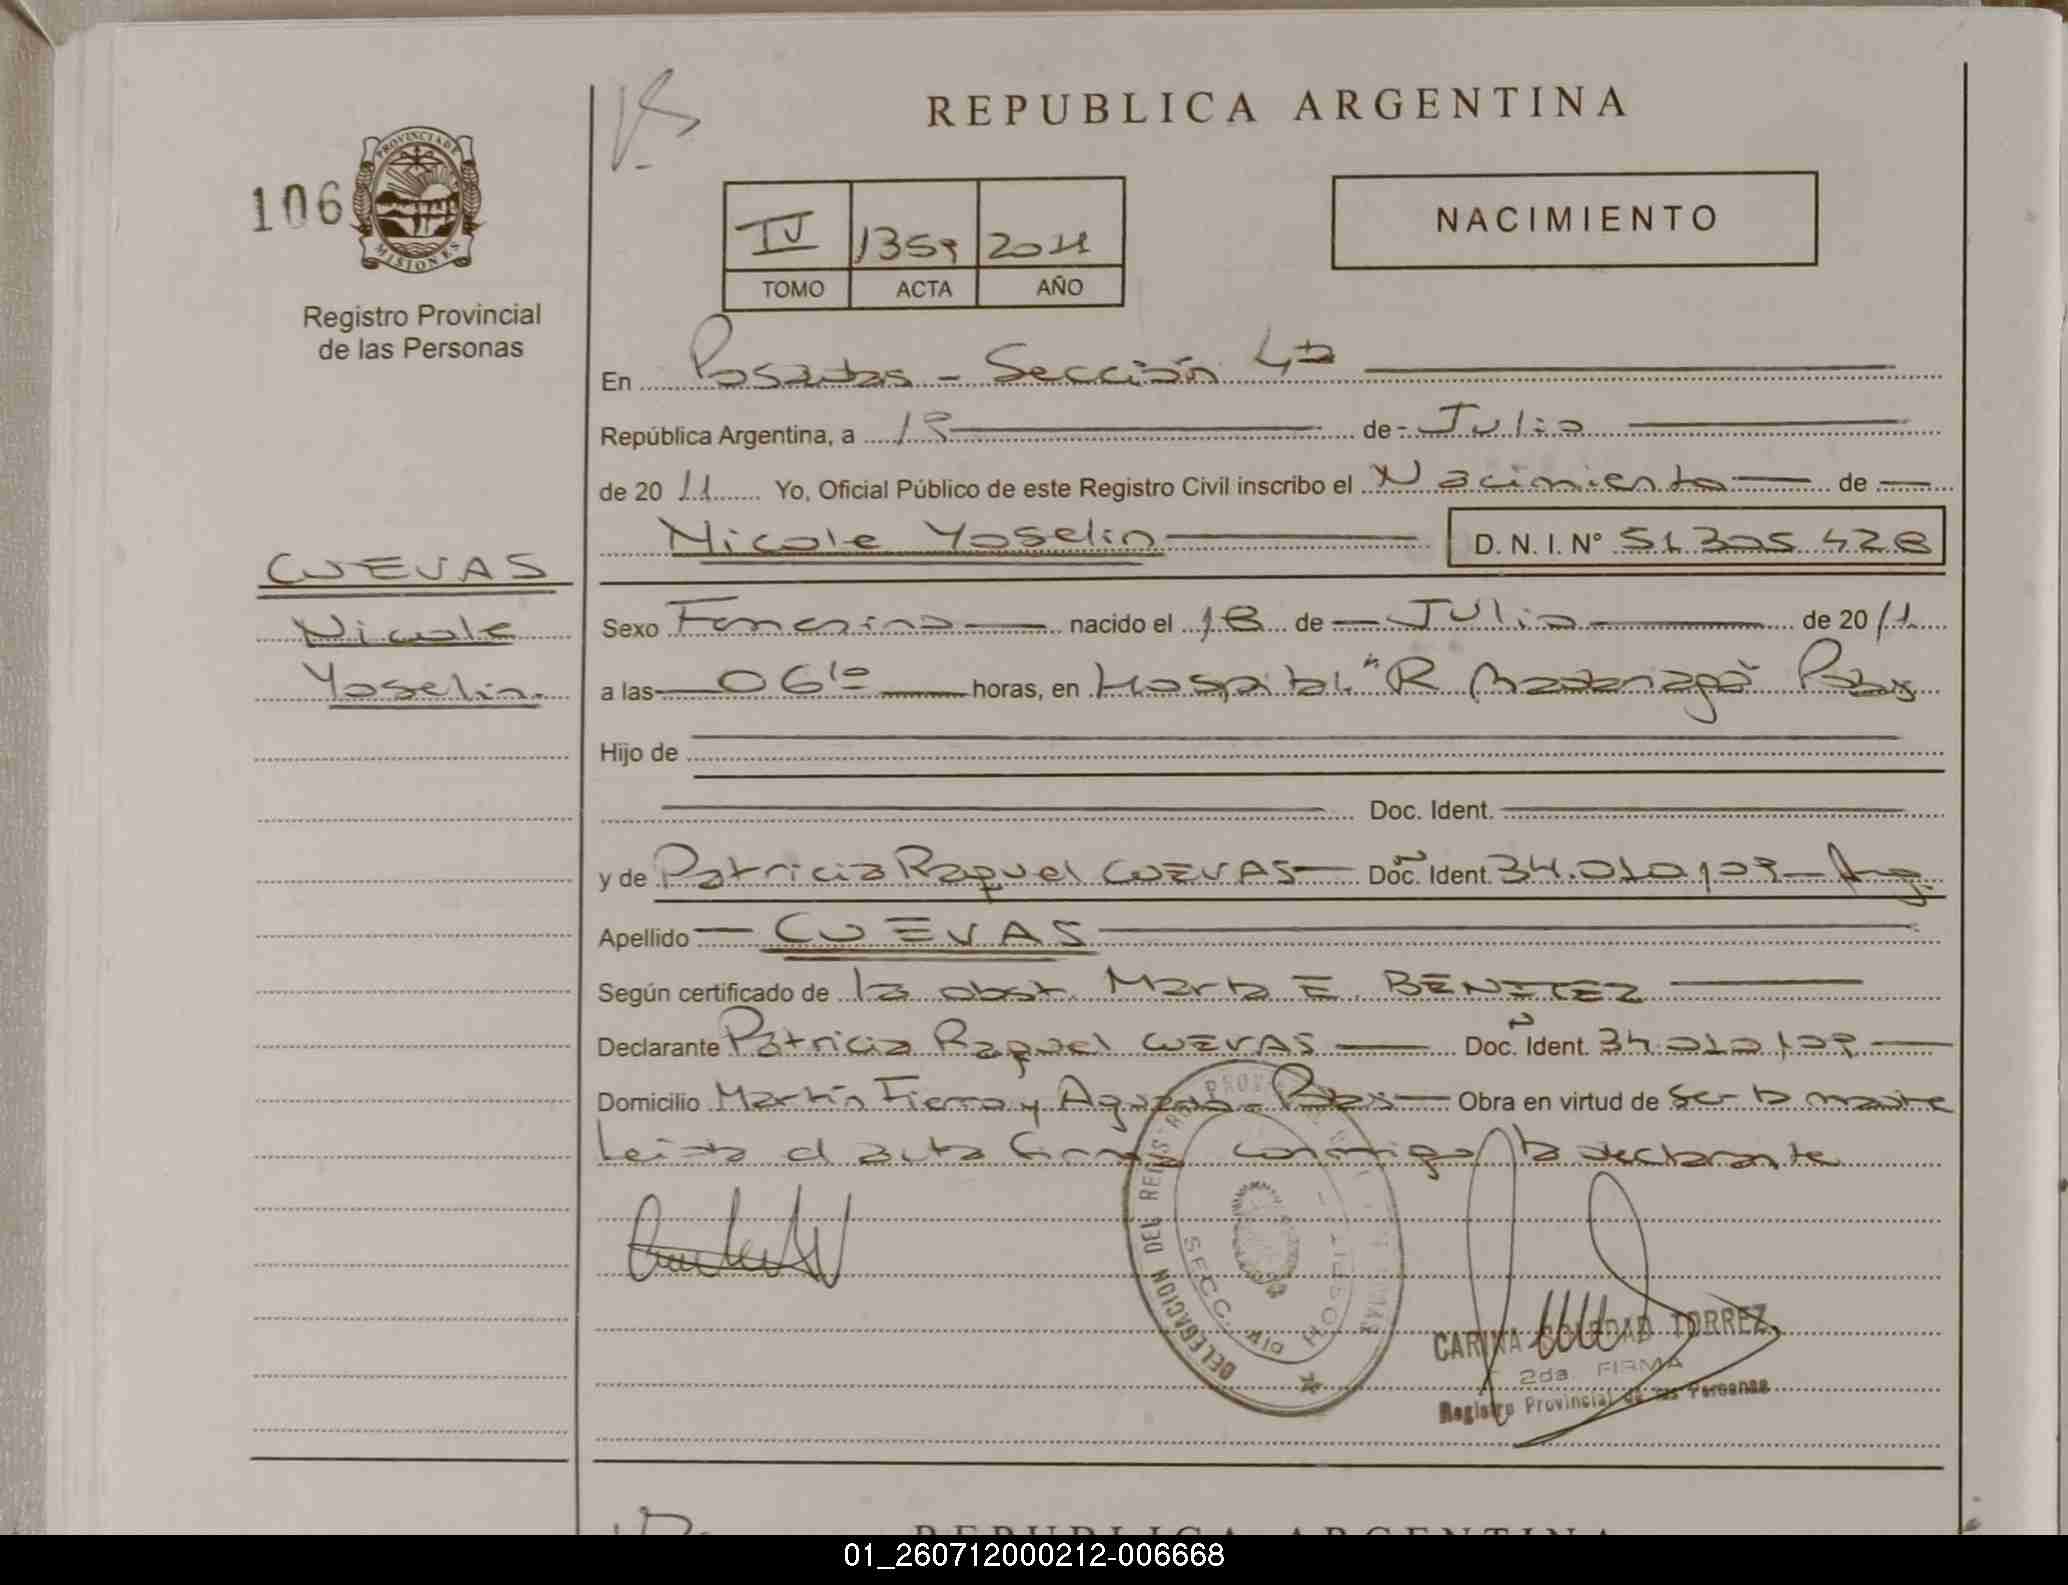 REPUBLICA ARGENTINA
106
PROVINCIA DE
MISIONES
Registro Provincial
de las Personas
NACIMIENTO
IV 1359 2011
TOMO ACTA AÑO
En Posadas - Sección 4ta
República Argentina, a 19 de - Julio
de 20 11 Yo, Oficial Público de este Registro Civil inscribo el Nacimiento de
Nicole Yoselin D. N. I. N° 51.305.428
CUEVAS
Nicole
Yoselin.
Sexo Femenino nacido el 18 de Julio de 20 11
a las 06 10 horas, en Hospital "R Madariaga" Pdas
Hijo de
Doc. Ident.
y de Patricia Raquel CUEVAS Doc. Ident. 34.010.109 - Arg.
Apellido CUEVAS
Según certificado de la obst. Marta E. BENITEZ
Declarante Patricia Raquel CUEVAS Doc. Ident. 34.010.109
Domicilio Martín Fierro y Pdas Obra en virtud de ser la madre
Leida el acta firma conmigo la declarante
DELEGACION DEL REGISTRO
SECC.
CARINA SOLEDAD TORREZ
2da FIRMA
Registro Provincial de las Personas
REPUBLICA ARGENTINA
01_260712000212-006668